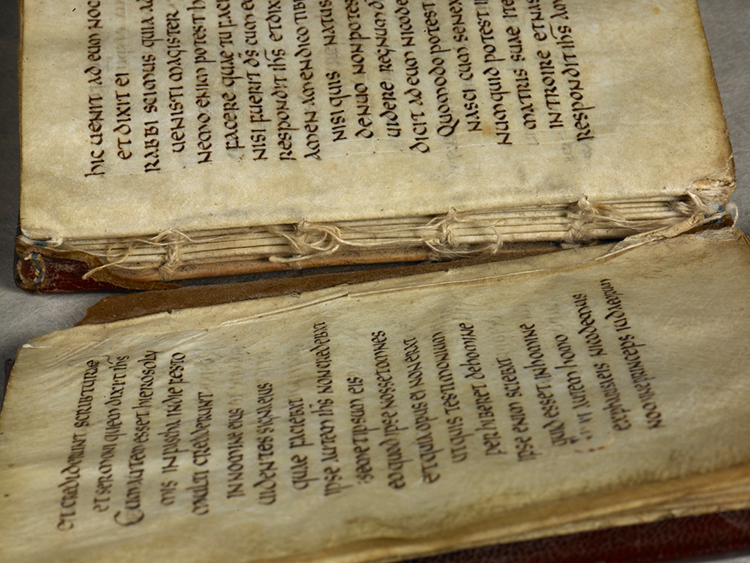 et crediderunt scripturae
et sermoni quem dixit ihs
Cum autem esset hierosoly
mis in pascha in die festo
multi crediderunt
in nomine eius
uidentes signa eius
quae faciebat
ipse autem ihs non credebat
semetipsum eis
eo quod ipse nosset omnes
et quia opus ei non erat
ut quis testimonium
perhiberet de homine
ipse enim sciebat
quid esset in homine
autem homo
ex pharisaeis nicodemus
nomine princeps iudaeorum
hic uenit ad eum noc
et dixit ei
rabbi scimus quia a d
uenisti magister
nemo enim potest h
facere quae tu facis
nisi fuerit ds cum eo
respondit ihs et dixit
amen amen dico tibi
nisi quis natus
denuo non potes
uidere regnum d
dicit ad eum nicode
Quomodo potest
nasci cum senex
numquid potest i
matris suae ite
introire et nas
respondit ihs am